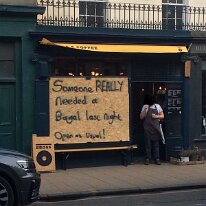 COFFEE
Someone REALLY
Needed a
Bagel last night
Open as usual!